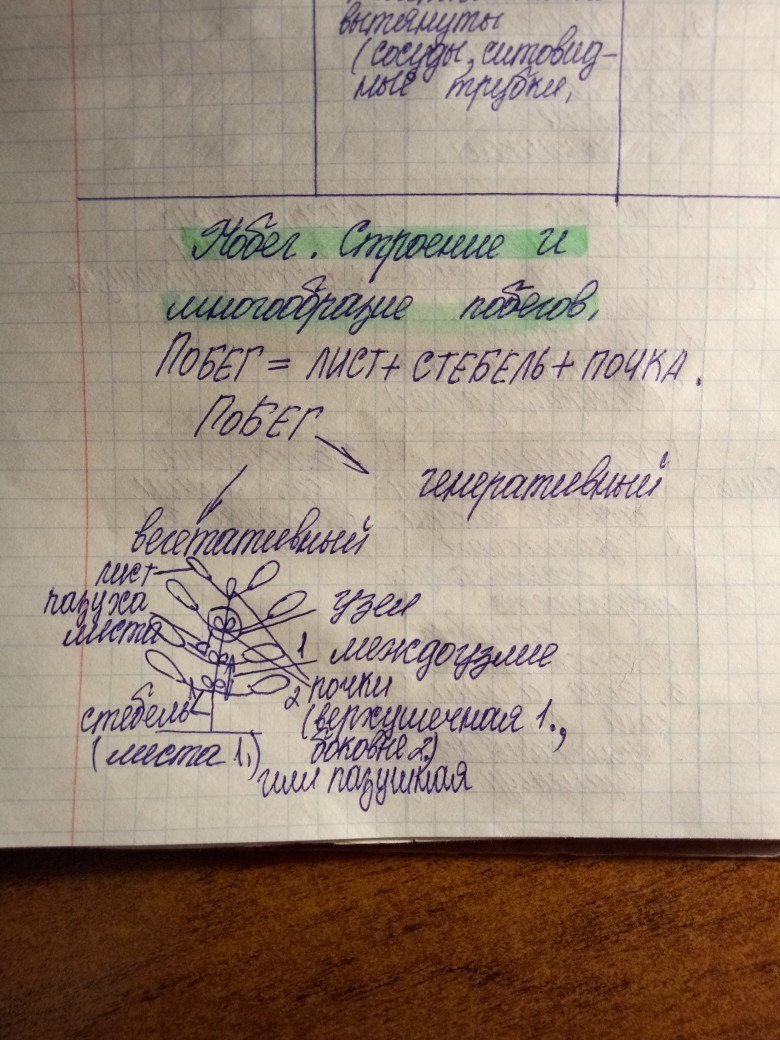 вытянуты
(сосуды, ситовид-
ные трубки,
Побег. Строение и
многообразие побегов.
ПОБЕГ = ЛИСТ + СТЕБЕЛЬ + ПОЧКА.
ПОБЕГ
генеративный
вегетативный
лист
пазуха
листа
узел
1 междоузлие
2 почки
(верхушечная 1.,
боковые 2.)
или пазушная
стебель
(листа 1.)